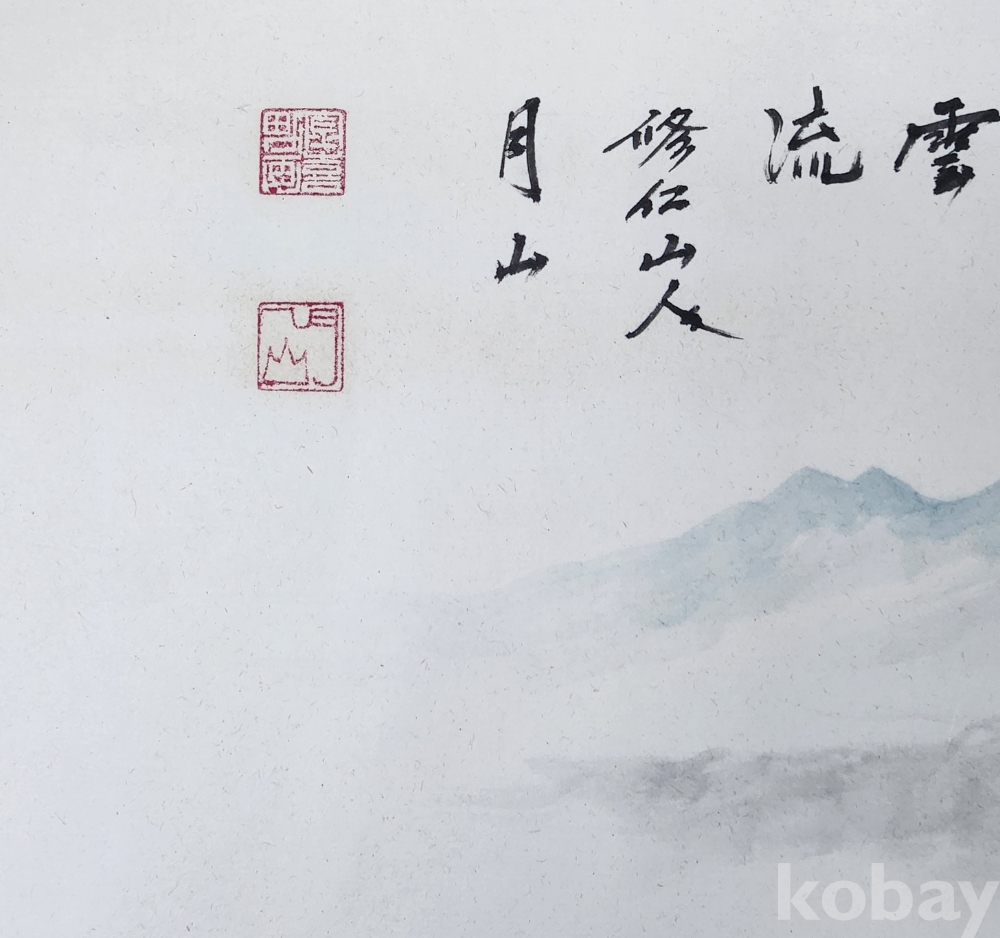 雲
流
修仁山人
月山
月山
kobay